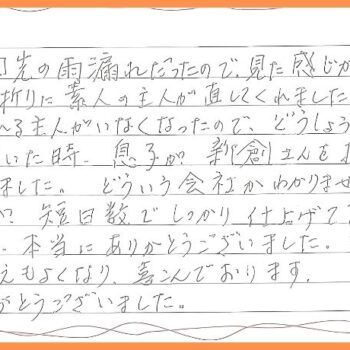 先の雨漏れだったので、見た感じが
折りに素人の主人が直してくれました
る主人がいなくなったので、どうしよう
いた時、息子が、新倉さんを
ました。どういう会社かわかりませ
短日数でしっかり仕上げて
、本当にありがとうございました。
えもよくなり、喜こんでおります。
がとうございました。